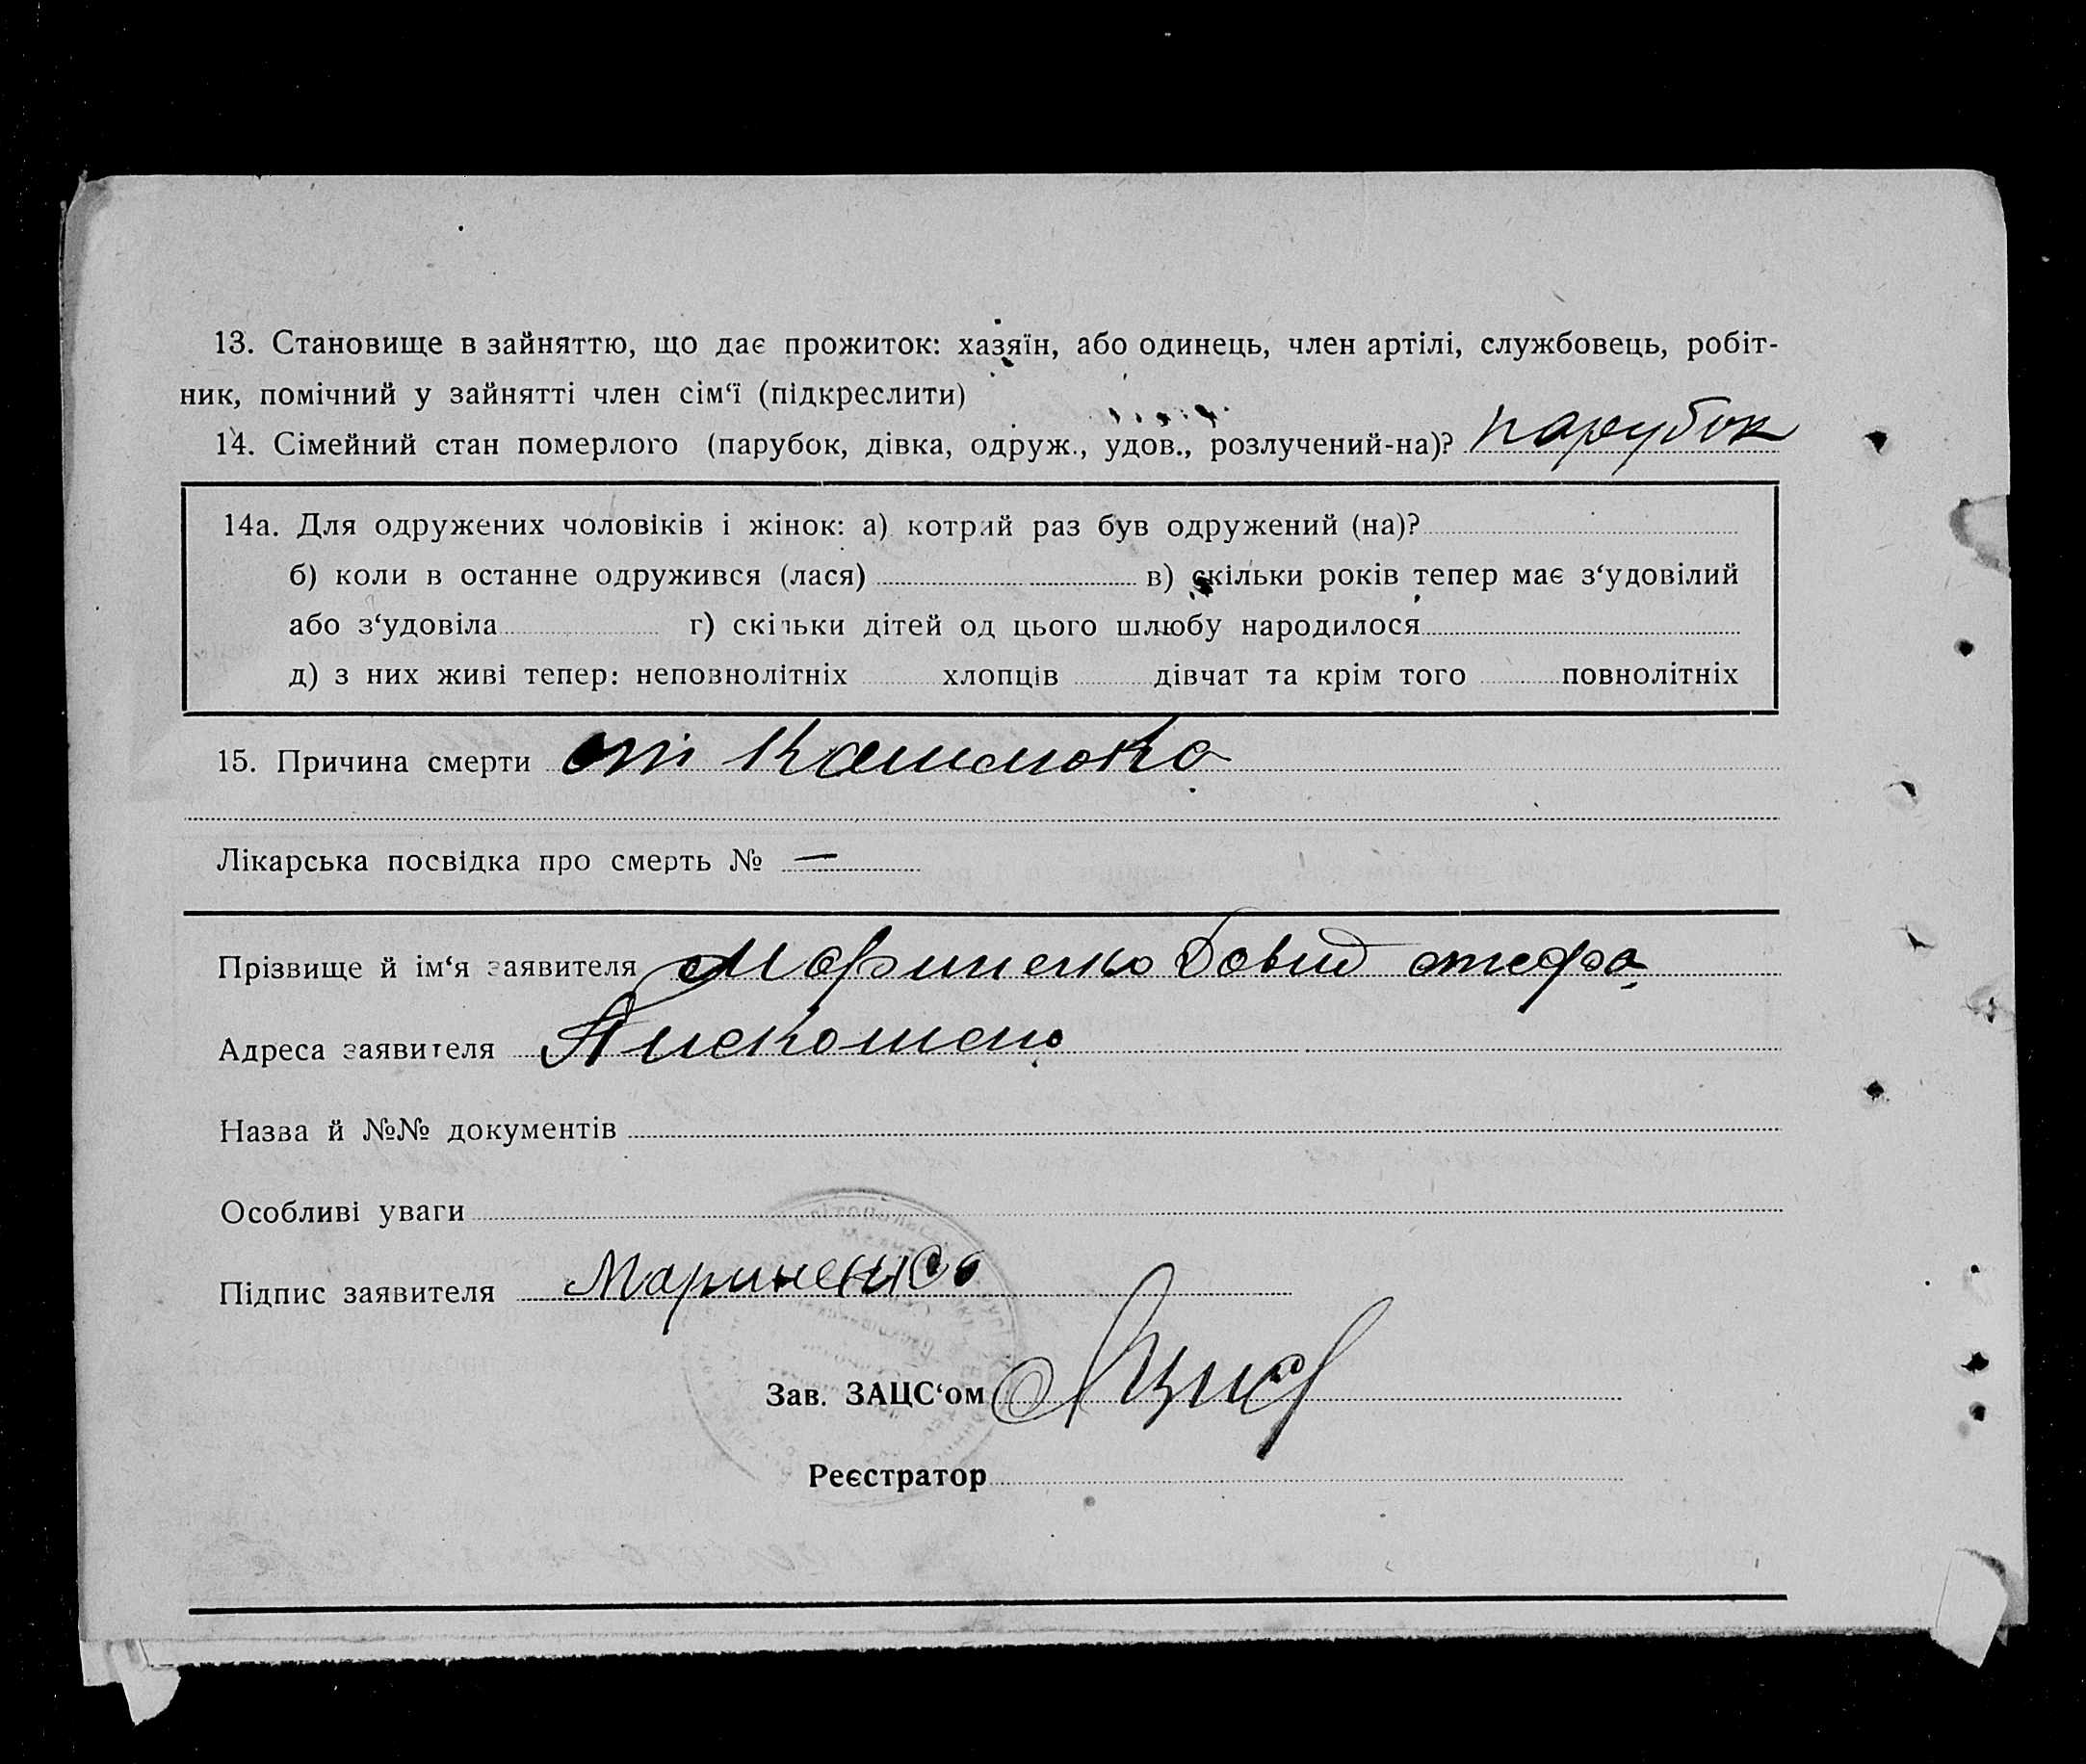 13. Становище в зайняттю, що дає прожиток: хазяїн, або одинець, член артілі, службовець, робіт-
ник, помічний у зайнятті член сім‘ї (підкреслити)
14. Сімейний стан померлого (парубок, дівка, одруж., удов., розлучений-на)? парубок
14а. Для одружених чоловіків і жінок: а) котрий раз був одружений (на)?
б) коли в останнє одружився (лася) в) скільки років тепер має з‘удовілий
або з‘удовіла г) скільки дітей од цього шлюбу народилося
д) з них живі тепер: неповнолітніх хлопців дівчат та крім того повнолітніх
15. Причина смерти от кашлюка
Лікарська посвідка про смерть № —
Прізвище й ім‘я заявителя Мариненко Давид
Адреса заявителя
Назва й №№ документів
Особливі уваги
Підпис заявителя Мариненко
Зав. ЗАЦС‘ом
Реєстратор